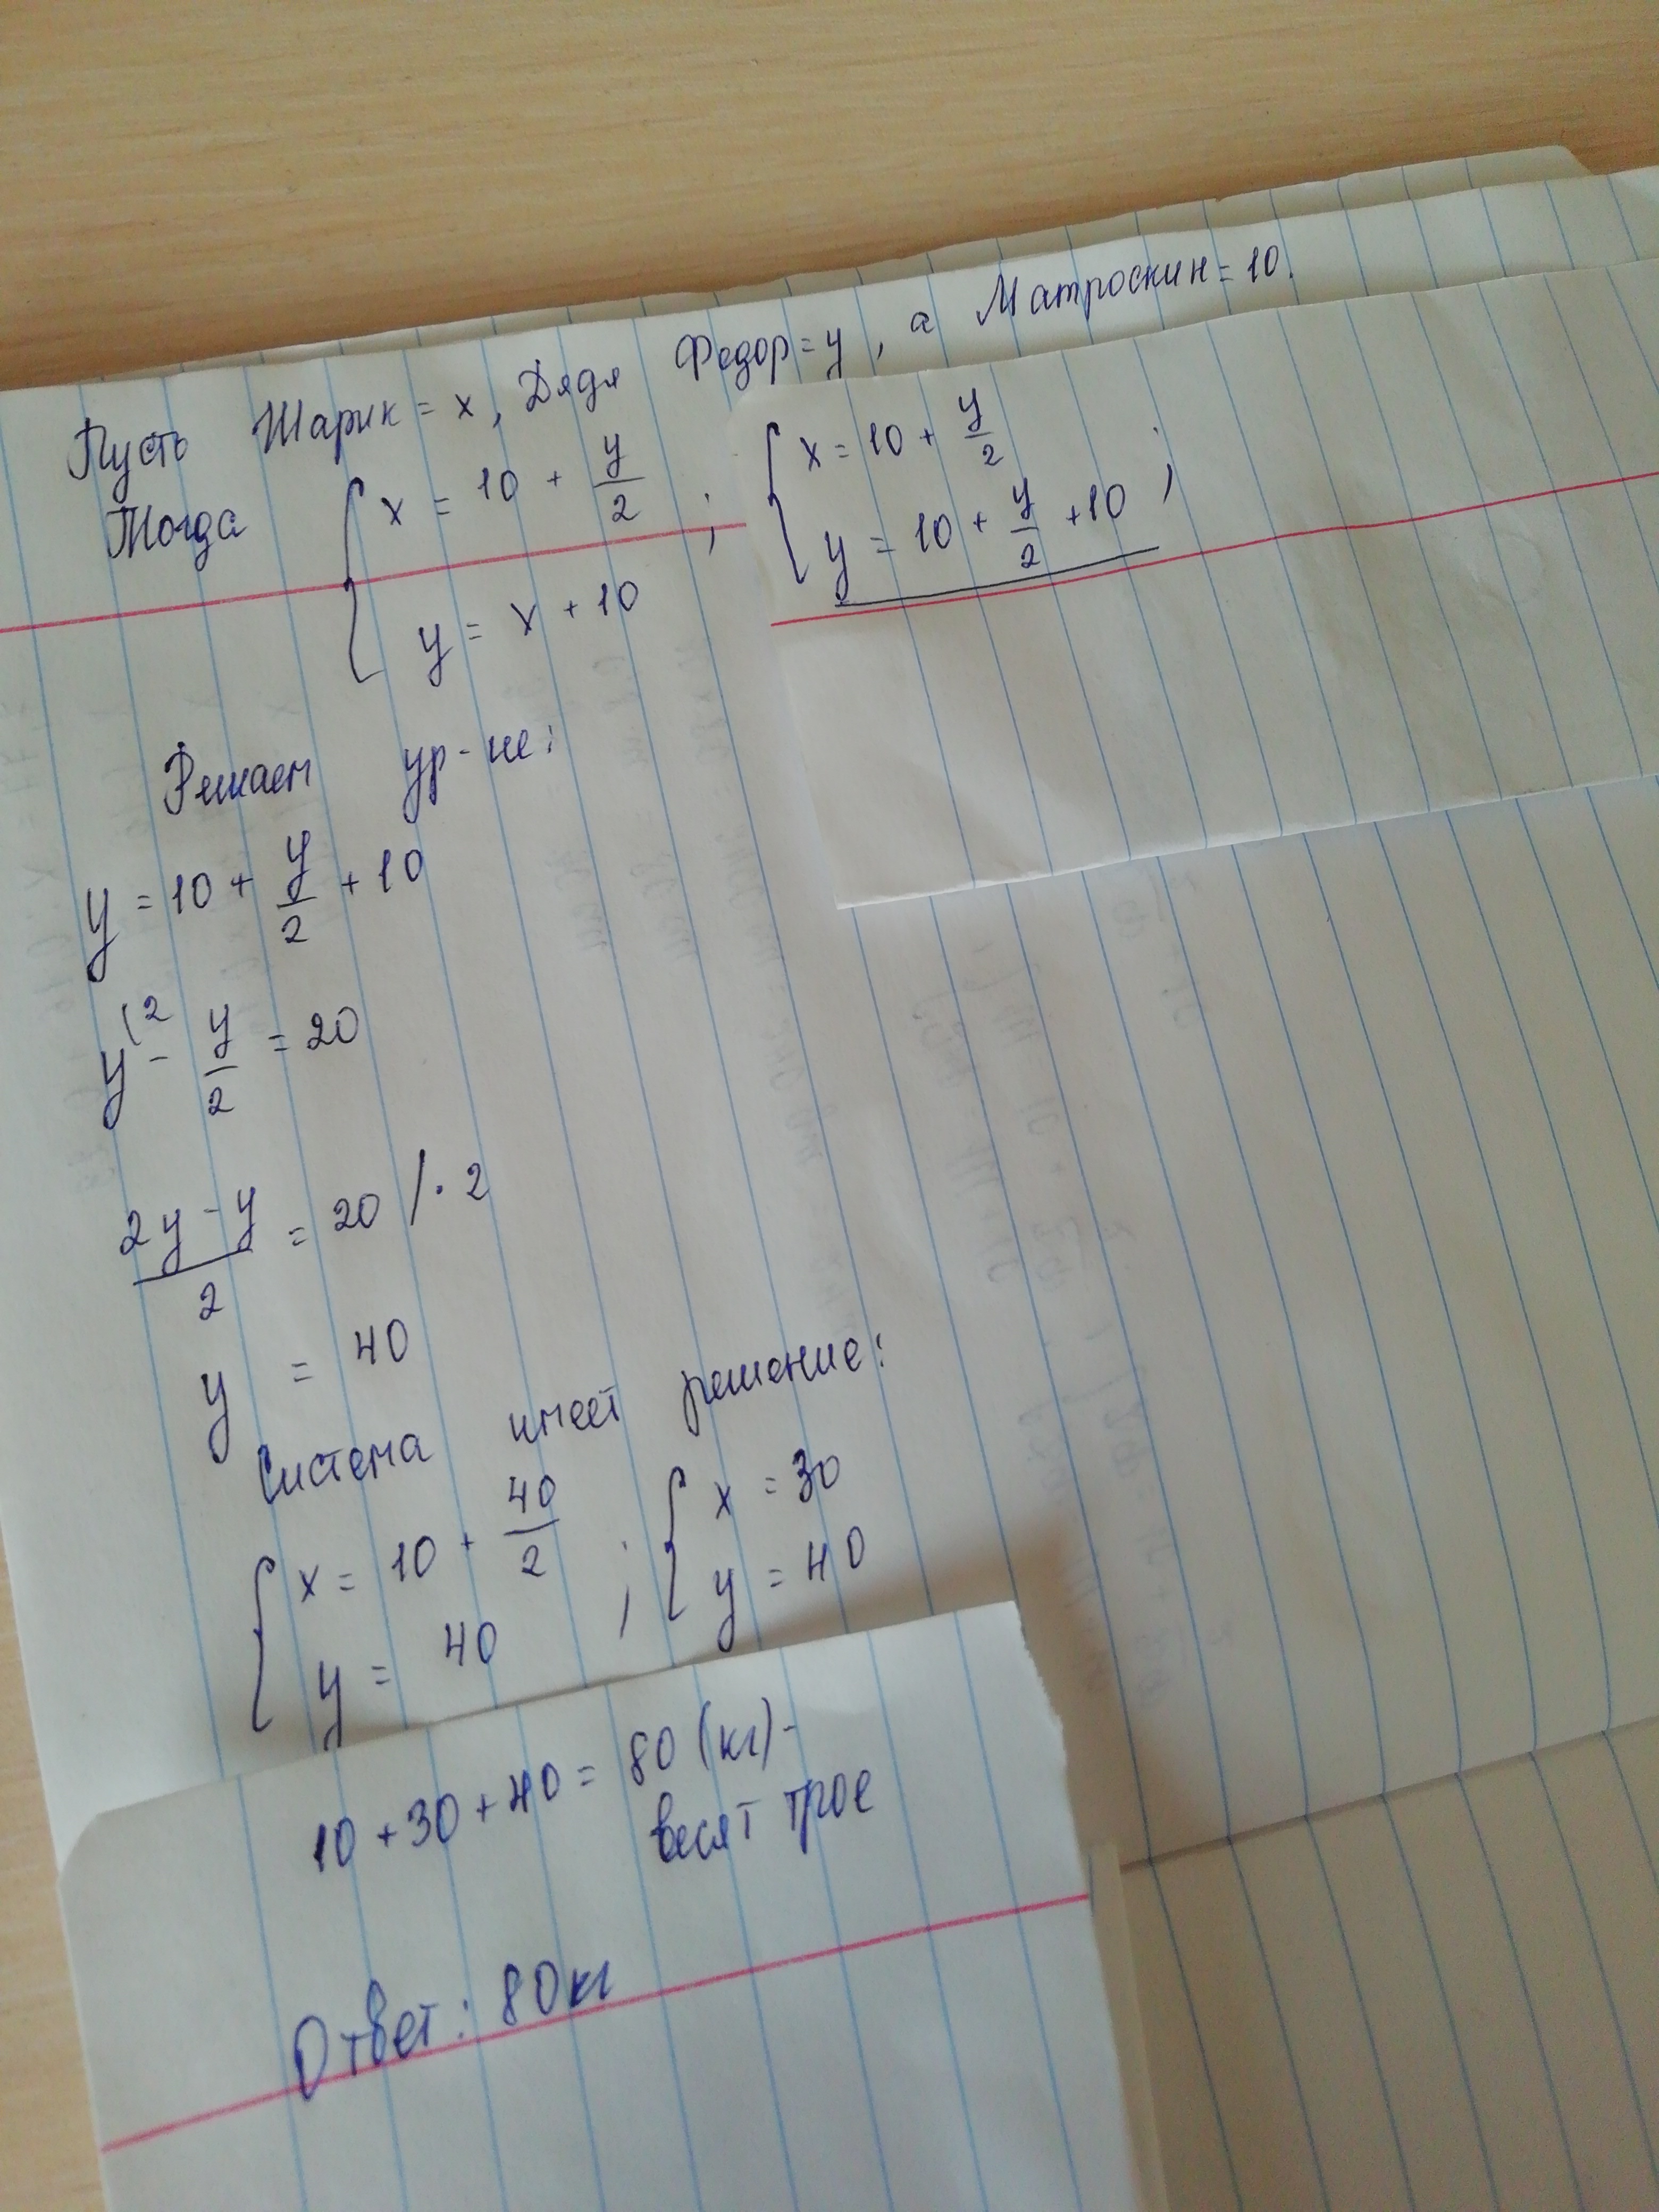 Пусть Шарик = x, Дядя Федор = y, а Матроскин = 10.
Тогда { x = 10 + y/2 ; { x = 10 + y/2 ;
y = x + 10 y = 10 + y/2 + 10
Решаем ур-ие:
y = 10 + y/2 + 10
y(2 - y/2 = 20
2y - y / 2 = 20 / · 2
y = 40
Система имеет решение:
{ x = 10 + 40/2 ; { x = 30
y = 40 y = 40
10 + 30 + 40 = 80 (кг) -
весят трое
Ответ: 80 кг